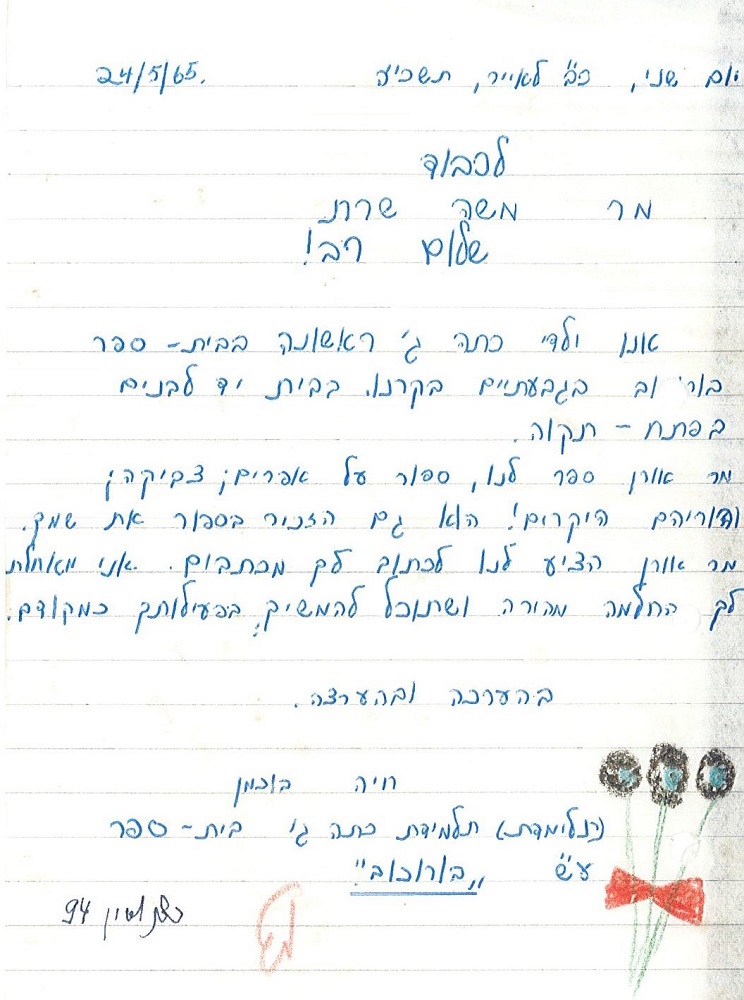 יום שני, כ"ב לאייר, תשכ"ה 24/5/65.
לכבוד
מר משה שרת
שלום רב!
אנו ילדי כתה ג' ראשונה בבית-ספר
בורוכוב בגבעתיים בקרנו בבית יד לבנים
בפתח-תקוה.
מר אורן ספר לנו, ספור על אפרים; צביקה;
והוריהם היקרים! הוא גם הזכיר בספור את שמך.
מר אורן הציע לנו לכתוב לך מכתבים. אני מאחלת
לך החלמה מהורה ושתוכל להמשיך בפעילותך כמקודם.
בהערכה ובהערצה.
חיה בוכמן
תלמידת כתה ג' בית-ספר
ע"ש "בורוכוב"
94